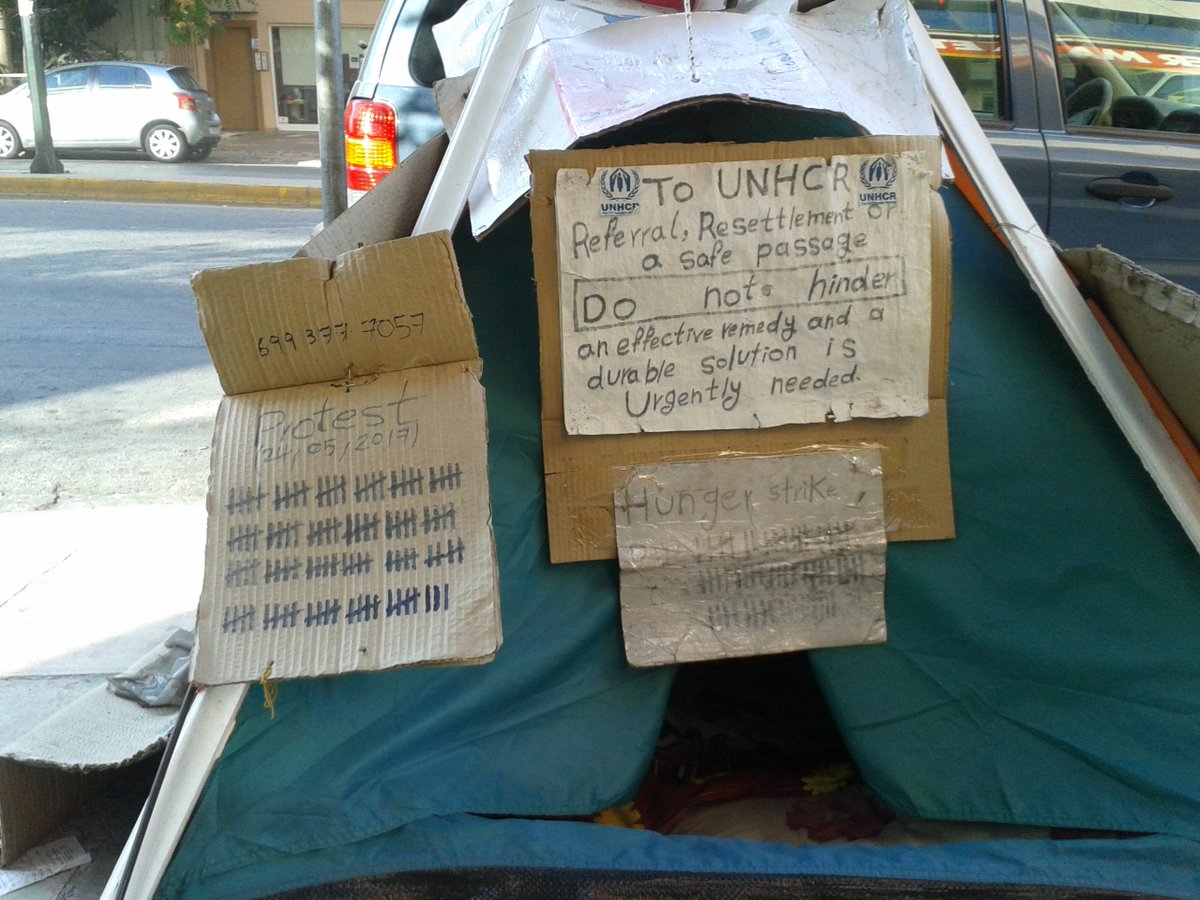 To UNHCR
UNHCR
UNHCR
Referral, Resettlement or
a safe passage
Do not hinder
an effective remedy and a
durable solution is
Urgently needed.
699 377 7057
Protest
(24/05/2017)
Hunger strike